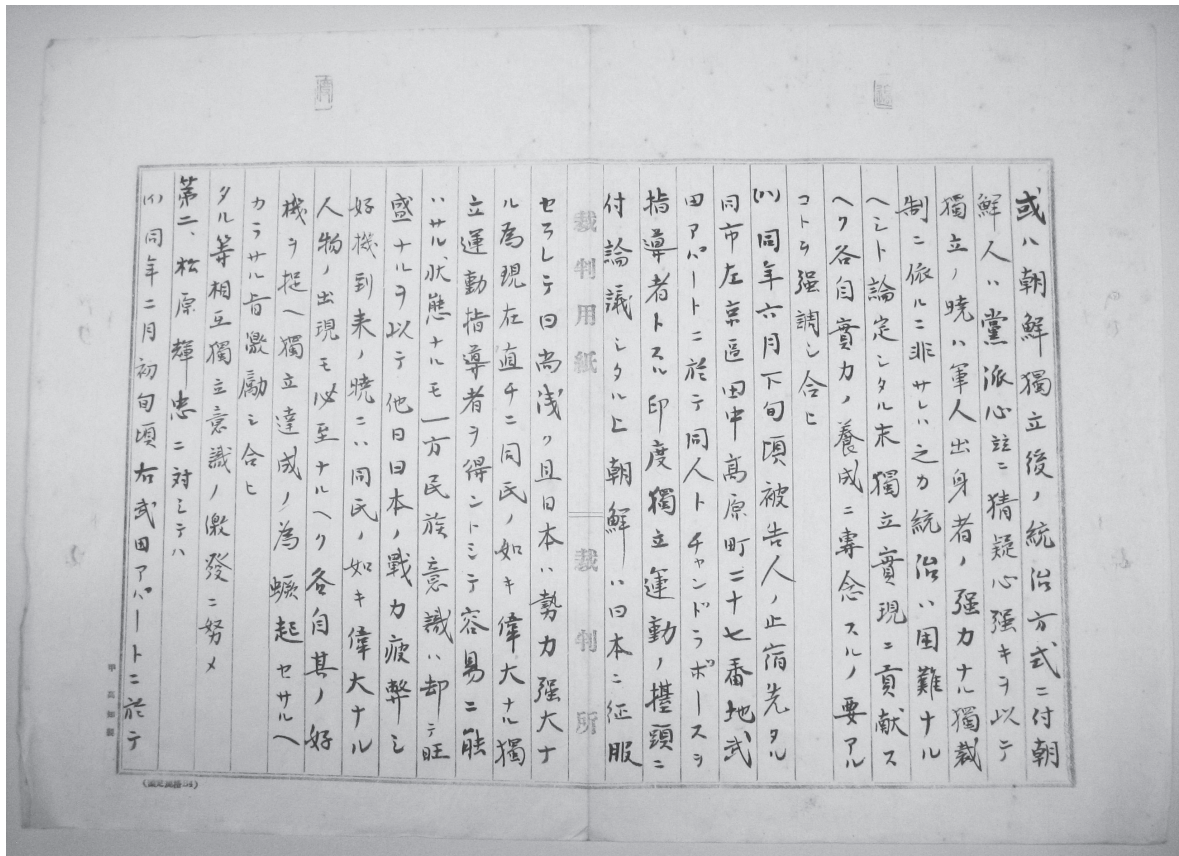 或ハ朝鮮獨立後ノ統治方式ニ付朝
鮮人ハ黨派心並ニ猜疑心强キヲ以テ
獨立ノ曉ハ軍人出身者ノ强力ナル獨裁
制ニ依ルニ非サレハ之カ統治ハ困難ナル
ヘシト論定シタル末獨立實現ニ貢献ス
ヘク各自實力ノ養成ニ專念スルノ要アル
コトヲ强調シ合ヒ
(ハ)同年六月下旬頃被告人ノ止宿先タル
同市左京區田中高原町二十七番地武
田アパートニ於テ同人トチャンドラボースヲ
指導者トスル印度獨立運動ノ擡頭ニ
付論議シタル上朝鮮ハ日本ニ征服
裁判用紙 裁判所
セラレテ日尚浅ク且日本ハ勢力强大ナ
ル為現在直チニ同氏ノ如キ偉大ナル獨
立運動指導者ヲ得ントシテ容易ニ能
ハサル状態ナルモ一方民族意識ハ却テ旺
盛ナルヲ以テ他日日本ノ戰力疲弊シ
好機到来ノ曉ニハ同氏ノ如キ偉大ナル
人物ノ出現モ必至ナルヘク各自其ノ好
機ヲ捉ヘ獨立達成ノ為蹶起セサルヘ
カラサル旨激勵シ合ヒ
タル等相互獨立意識ノ激發ニ努メ
第二、松原輝忠ニ対シテハ
(イ)同年二月初旬頃右武田アパートニ於テ